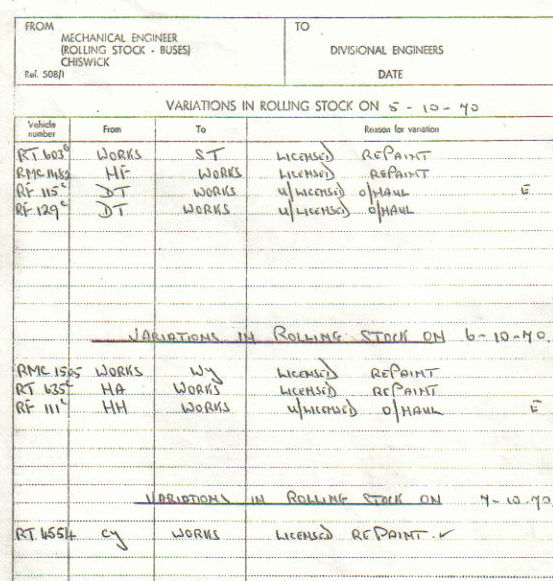 FROM TO
MECHANICAL ENGINEER
(ROLLING STOCK - BUSES) DIVISIONAL ENGINEERS
CHISWICK
Ref. 508/1 DATE
VARIATIONS IN ROLLING STOCK ON 5-10-70
Vehicle number From To Reason for variation
RT 603 WORKS ST LICENSED REPAINT
RMC 1482 HF WORKS LICENSED REPAINT
RF 115 c DT WORKS U/LICENSED O/HAUL E
RF 129 c DT WORKS U/LICENSED O/HAUL
VARIATIONS IN ROLLING STOCK ON 6-10-70.
RMC 1505 WORKS WY LICENSED REPAINT
RT 635 c HA WORKS LICENSED REPAINT
RF 111 c HH WORKS U/LICENSED O/HAUL E
VARIATIONS IN ROLLING STOCK ON 7-10-70
RT 4554 CY WORKS LICENSED REPAINT ✓